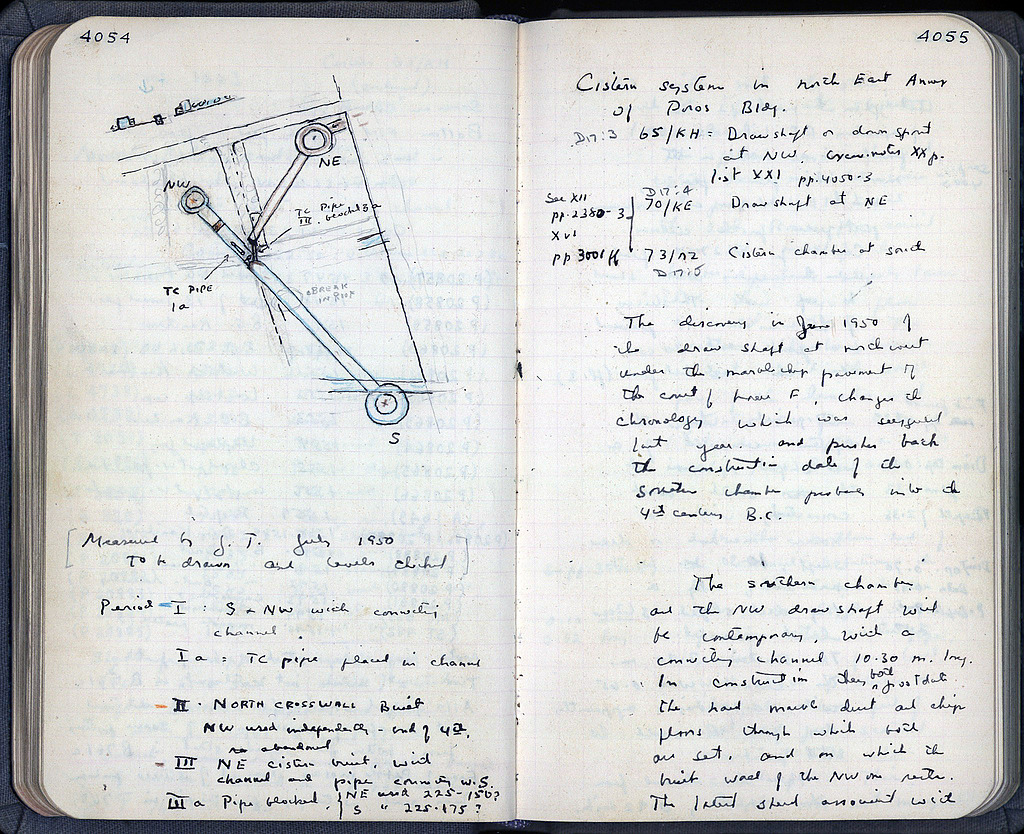 4054
NW
NE
TC Pipe
III. blocked 3a
TC PIPE
1a
BREAK
IN
S
[Measured by J. T. July 1950
To be drawn and levels checked]
Period I : S & NW with connecting
channel.
Ia : TC pipe placed in channel
II . NORTH CROSSWALL Built
NW used independently - end of 4th,
so abandoned
III NE cistern built, with
channel and pipe connecting w. S.
IIIa Pipe blocked. NE used 225-150?
S " 225-175?
4055
Cistern system in north East Annex
of Poros Bldg.
D17:3 65/KH = Draw shaft or down spout
at NW
list XXI pp. 4050-3
See XII
pp. 2380-3
XVI
pp 3001 ff
D17:4
70/KE Draw shaft at NE
73/ Cistern chamber at south
D17:5
The discovery in June 1950 of
the draw shaft at northwest
under the marble chip pavement of
the court of house F. changes the
chronology which was suggested
last year and pushes back
the construction date of the
southern chamber perhaps into the
4th century B.C.
The southern chamber
and the NW draw shaft will
be contemporary, with a
connecting channel 10.30 m. long.
In construction they both post date
the hard marble dust and chip
floors through which both
are set, and on which the
built wall of the NW one rests.
The latest sherd associated with